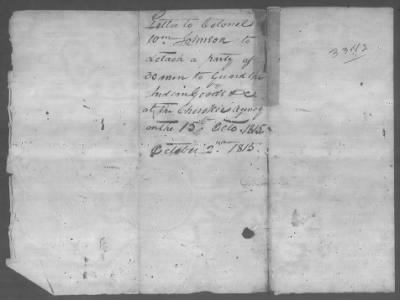 Letter to Colonel
Wm Johnson to
detach a party of
20 men to Guard the
Indian Goods &c
at the Cherokee agency
on the 15th Octo. 1815.
October 2nd 1815.